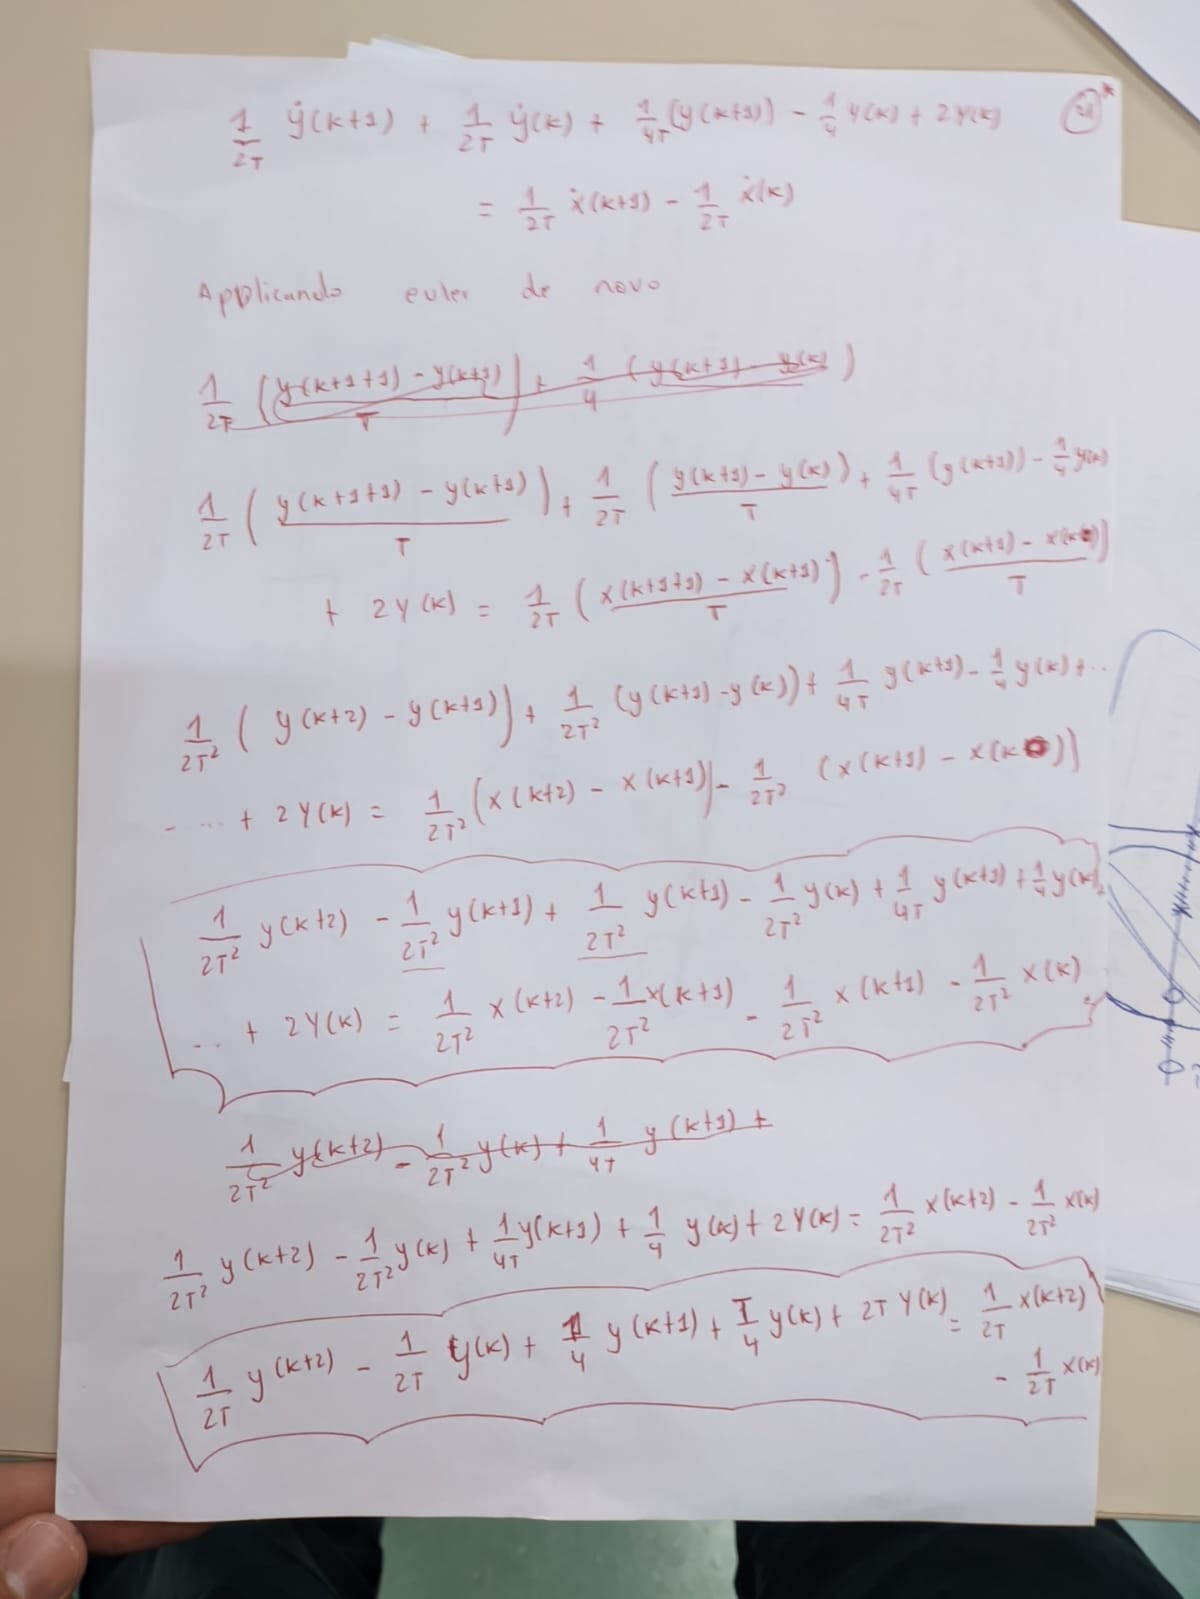 1/2T ẏ(k+1) + 1/2T ẏ(k) + 1/4T (y(k+1)) - 1/4 y(k) + 2y(k)
= 1/2T ẋ(k+1) - 1/2T ẋ(k)
Applicando euler de novo
1/2T (y(k+1+1) - y(k+1)/T) + 1/4 (y(k+1) - y(k))
1/2T (y(k+1+1) - y(k+1)/T) + 1/2T (y(k+1) - y(k)/T) + 1/4T (y(k+1)) - 1/4 y(k)
+ 2y(k) = 1/2T (x(k+1+1) - x(k+1)/T) - 1/2T (x(k+1) - x(k)/T)
1/2T² (y(k+2) - y(k+1)) + 1/2T² (y(k+1) - y(k)) + 1/4T y(k+1) - 1/4 y(k) + ..
- ... + 2y(k) = 1/2T² (x(k+2) - x(k+1)) - 1/2T² (x(k+1) - x(k))
1/2T² y(k+2) - 1/2T² y(k+1) + 1/2T² y(k+1) - 1/2T² y(k) + 1/4T y(k+1) + 1/4 y(k)
.. + 2y(k) = 1/2T² x(k+2) - 1/2T² x(k+1) - 1/2T² x(k+1) - 1/2T² x(k)
1/2T² y(k+2) - 1/2T² y(k) + 1/4T y(k+1) +
1/2T² y(k+2) - 1/2T² y(k) + 1/4T y(k+1) + 1/4 y(k) + 2y(k) = 1/2T² x(k+2) - 1/2T² x(k)
1/2T y(k+2) - 1/2T y(k) + 1/4 y(k+1) + T/4 y(k) + 2T y(k) = 1/2T x(k+2)
- 1/2T x(k)